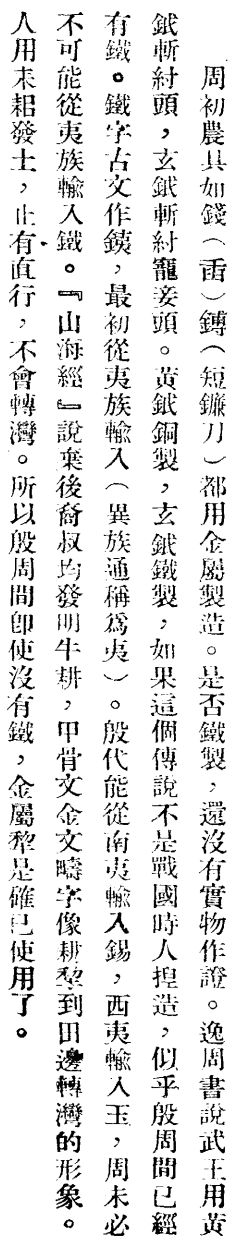 周初農具如錢(臿)鎛(短鐮刀)都用金屬製造。是否鐵製,還沒有實物作證。逸周書說武王用黃
鉞斬紂頭,玄鉞斬紂寵妾頭。黃鉞銅製,玄鉞鐵製,如果這個傳說不是戰國時人捏造,似乎殷周間已經
有鐵。鐵字古文作銕,最初從夷族輸入(異族通稱爲夷)。殷代能從南夷輸入錫,西夷輸入玉,周未必
不可能從夷族輸入鐵。『山海經』說棄後裔叔均發明牛耕,甲骨文金文疇字像耕犂到田邊轉灣的形象。
人用耒耜發土,止有直行,不會轉灣。所以殷周間卽使沒有鐵,金屬犂是確已使用了。